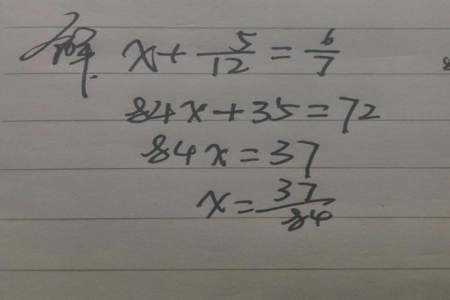 解. x + 5/12 = 6/7
84x + 35 = 72
84x = 37
x = 37/84